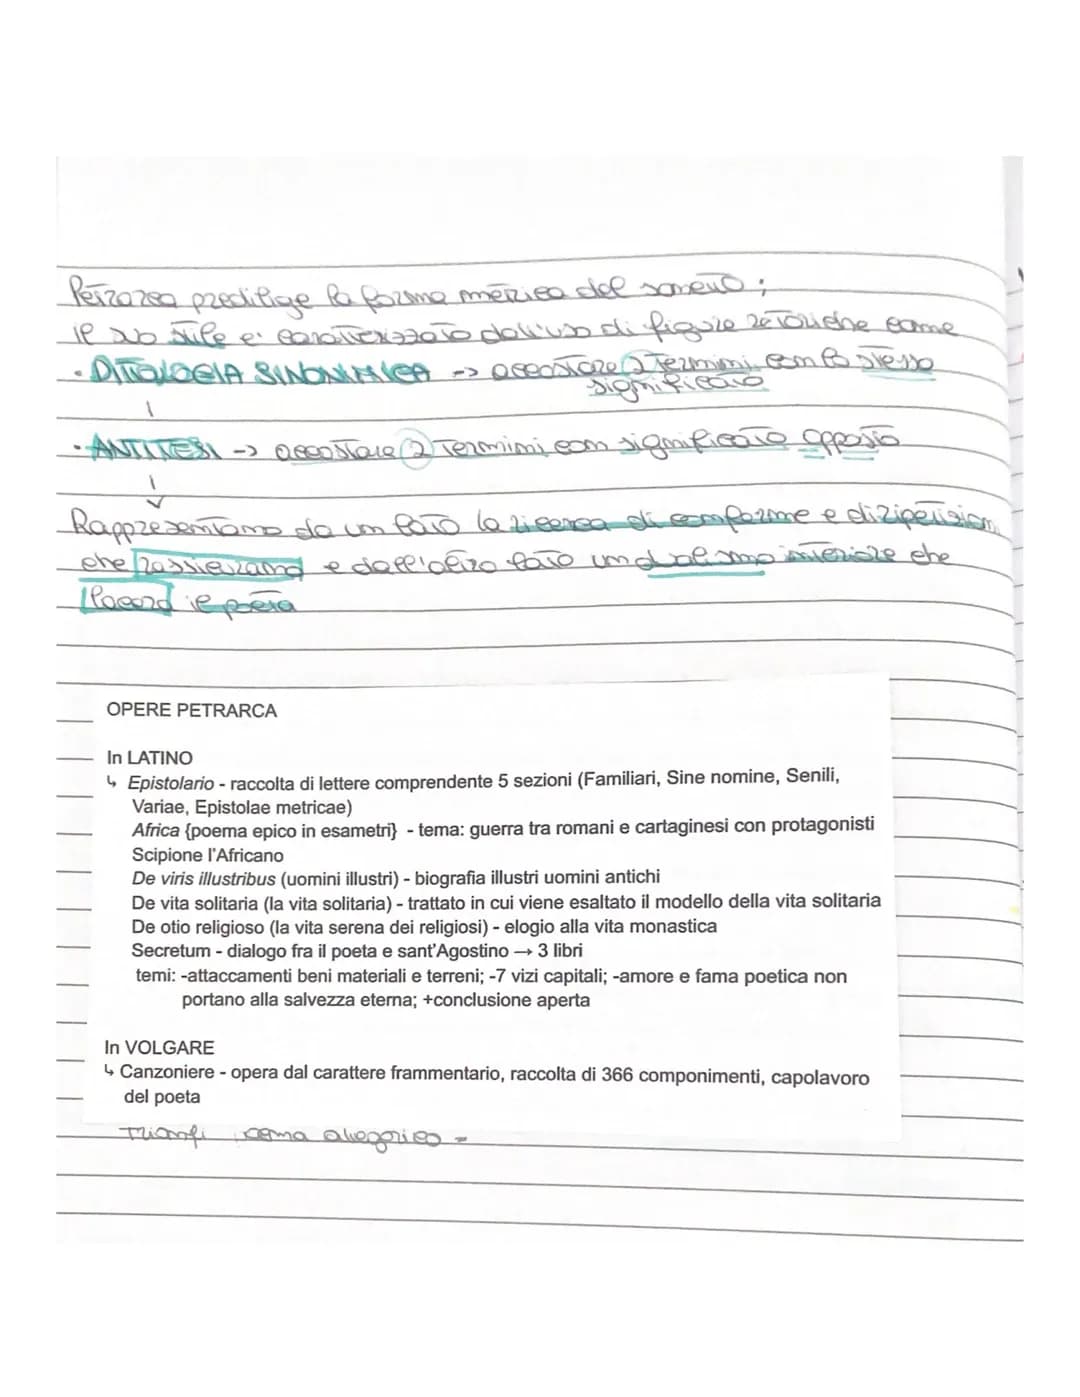 Petrarca predilige la forma metrica del sonetto;
il suo stile e' caratterizzato dall'uso di figure retoriche come
• DITTOLOGIA SINONIMICA -> accostare 2 termini con lo stesso
significato
• ANTITESI -> accostare 2 termini con significato opposto
Rappresentano da un lato la ricerca di conferme e di ripetizioni
che rassicurano e dall'altro lato un dualismo interiore che
lacera il poeta
OPERE PETRARCA
In LATINO
↳ Epistolario - raccolta di lettere comprendente 5 sezioni (Familiari, Sine nomine, Senili,
Variae, Epistolae metricae)
Africa {poema epico in esametri} - tema: guerra tra romani e cartaginesi con protagonisti
Scipione l'Africano
De viris illustribus (uomini illustri) - biografia illustri uomini antichi
De vita solitaria (la vita solitaria) - trattato in cui viene esaltato il modello della vita solitaria
De otio religioso (la vita serena dei religiosi) - elogio alla vita monastica
Secretum - dialogo fra il poeta e sant'Agostino → 3 libri
temi: -attaccamenti beni materiali e terreni; -7 vizi capitali; -amore e fama poetica non
portano alla salvezza eterna; +conclusione aperta
In VOLGARE
↳ Canzoniere - opera dal carattere frammentario, raccolta di 366 componimenti, capolavoro
del poeta
Trionfi allegorico -